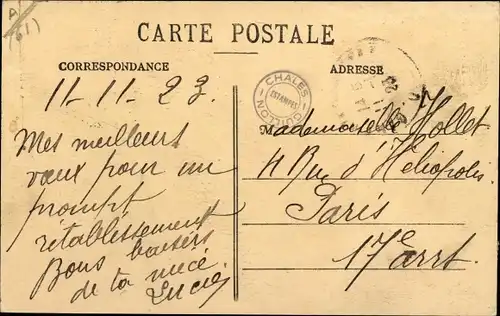 A
(61)
CARTE POSTALE
CORRESPONDANCE
ADRESSE
11-11-23.
CHALES
ESTAMPES
GUILLON
Mes meilleurs
vœux pour un
prompt
rétablissement
Bons baisers
de ta nièce
Lucie
Mademoiselle Hollet
4 Rue d'Héliopolis.
Paris
17e Arrt.